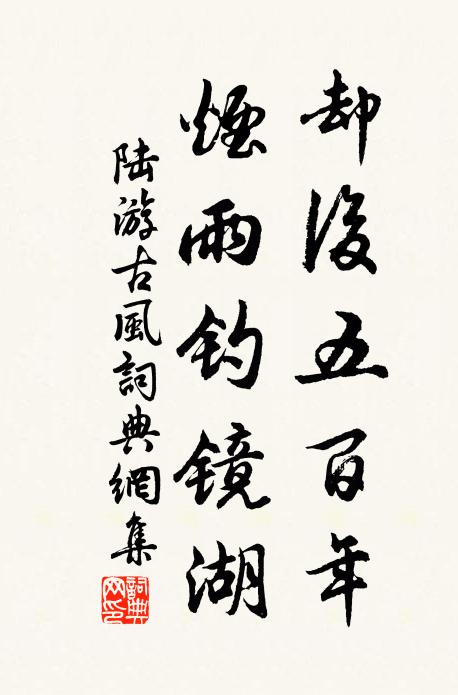 却後五百年
煙雨钓镜湖
陆游古風詞典網集
詞典
网印